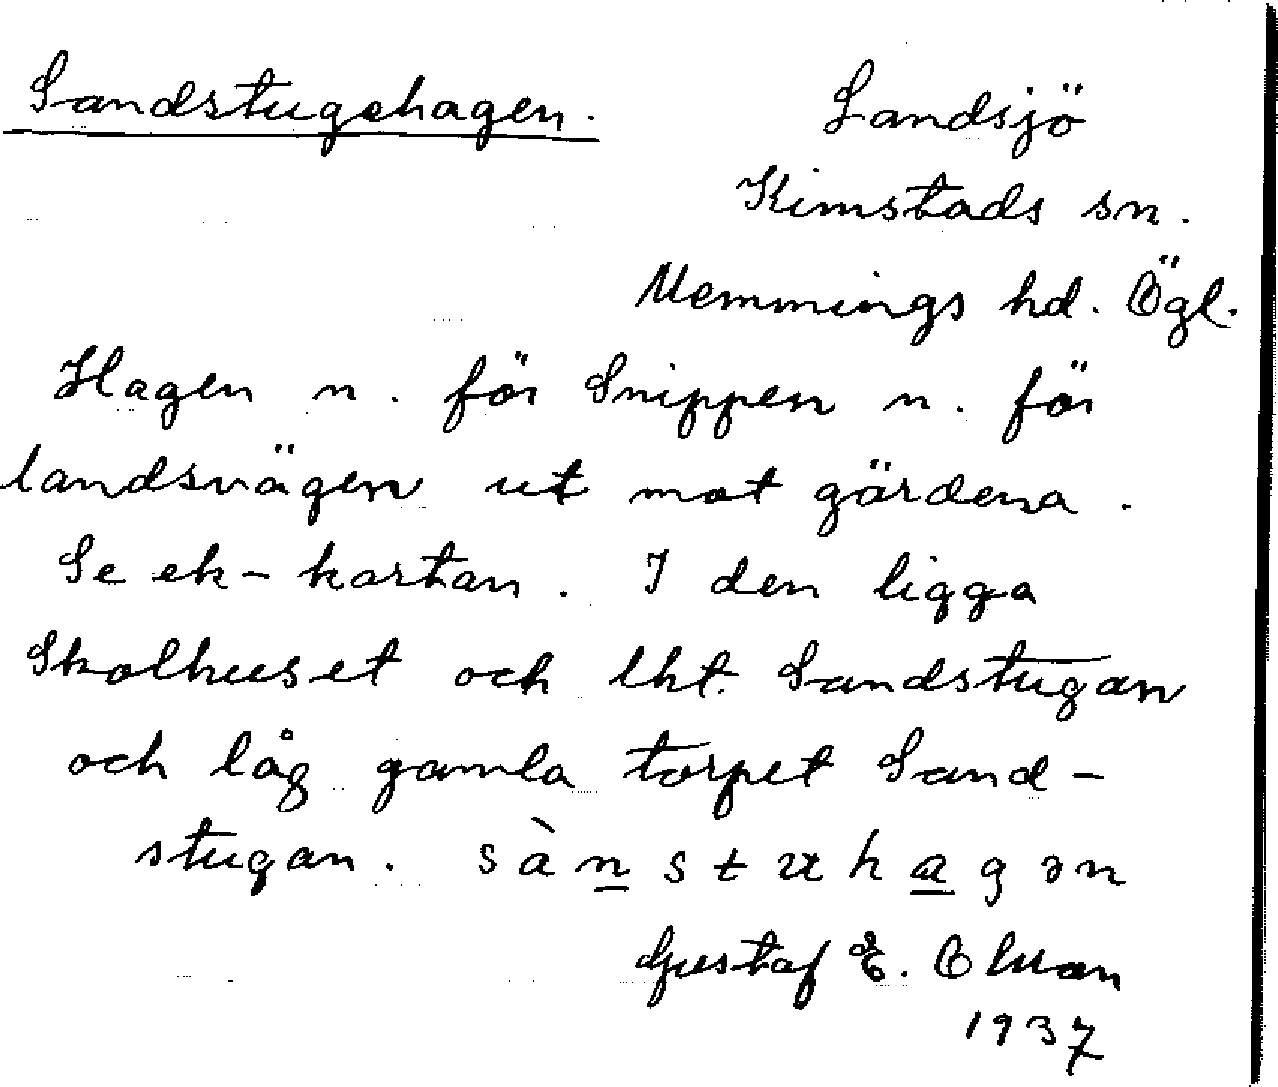 Sandstugehagen.
Landsjö
Kimstads sn.
Memmings hd. Ögl.
Hagen n. för Snippen n. för
landsvägen ut mot gärdena.
Se ek-kartan. I den ligga
Skolhuset och lht. Sandstugan
och låg gamla torpet Sand-
stugan. sànstuhagən
Gustaf E.
1937